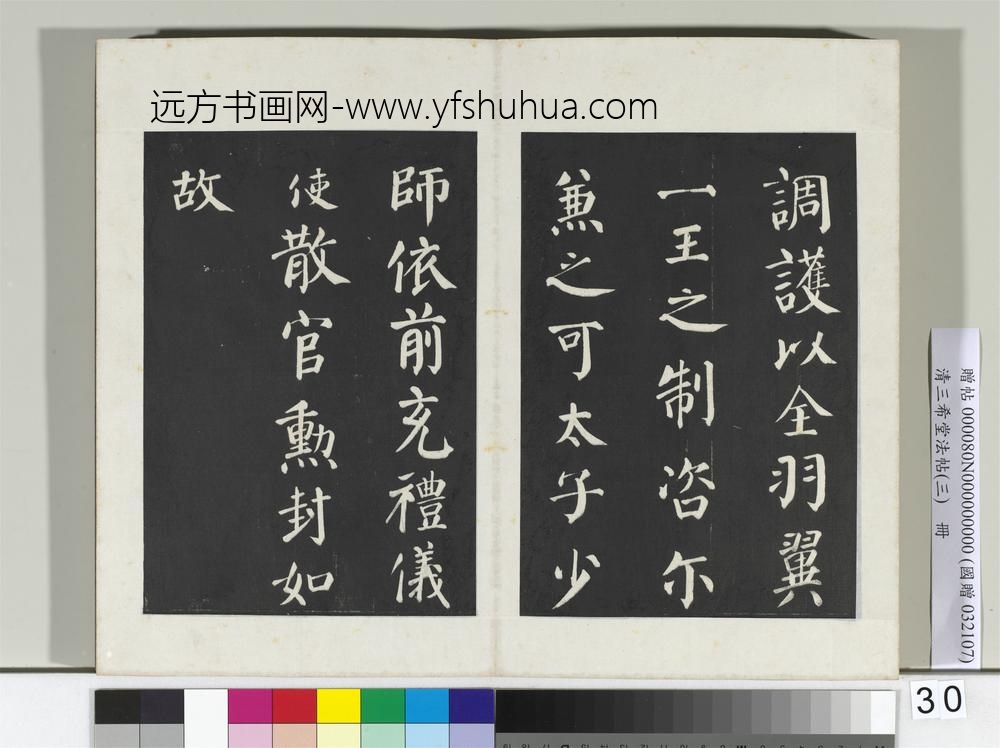 远方书画网-www.yfshuhua.com
調護以全羽翼
一王之制咨尔
兼之可太子少
師依前充禮儀
使散官勳封如
故
贈帖 000080N000000000 (國贈 032107)
清三希堂法帖(三) 冊
30